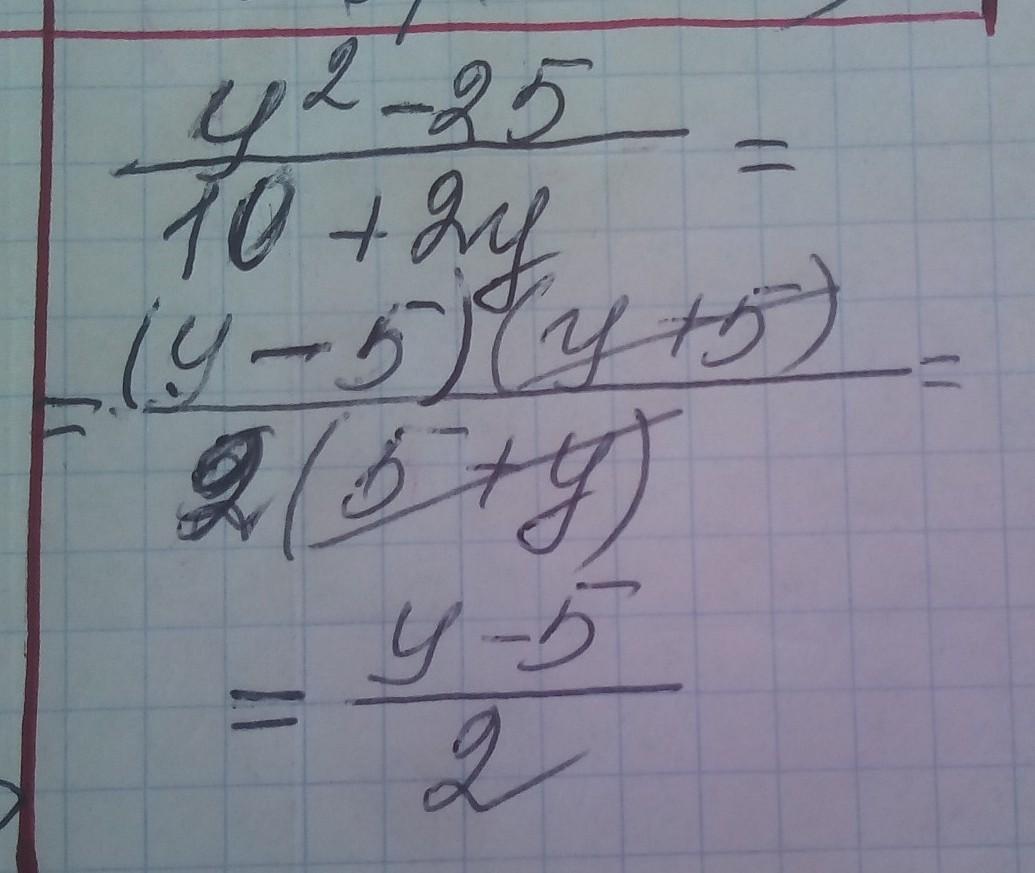 y² - 25
10 + 2y =
= (y - 5)(y + 5)
2(5 + y) =
= y - 5
2